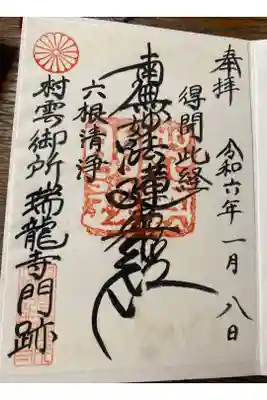 奉拝
令和六年一月八日
得聞此経
南無妙法蓮華経
六根清浄
村雲御所瑞龍寺門跡